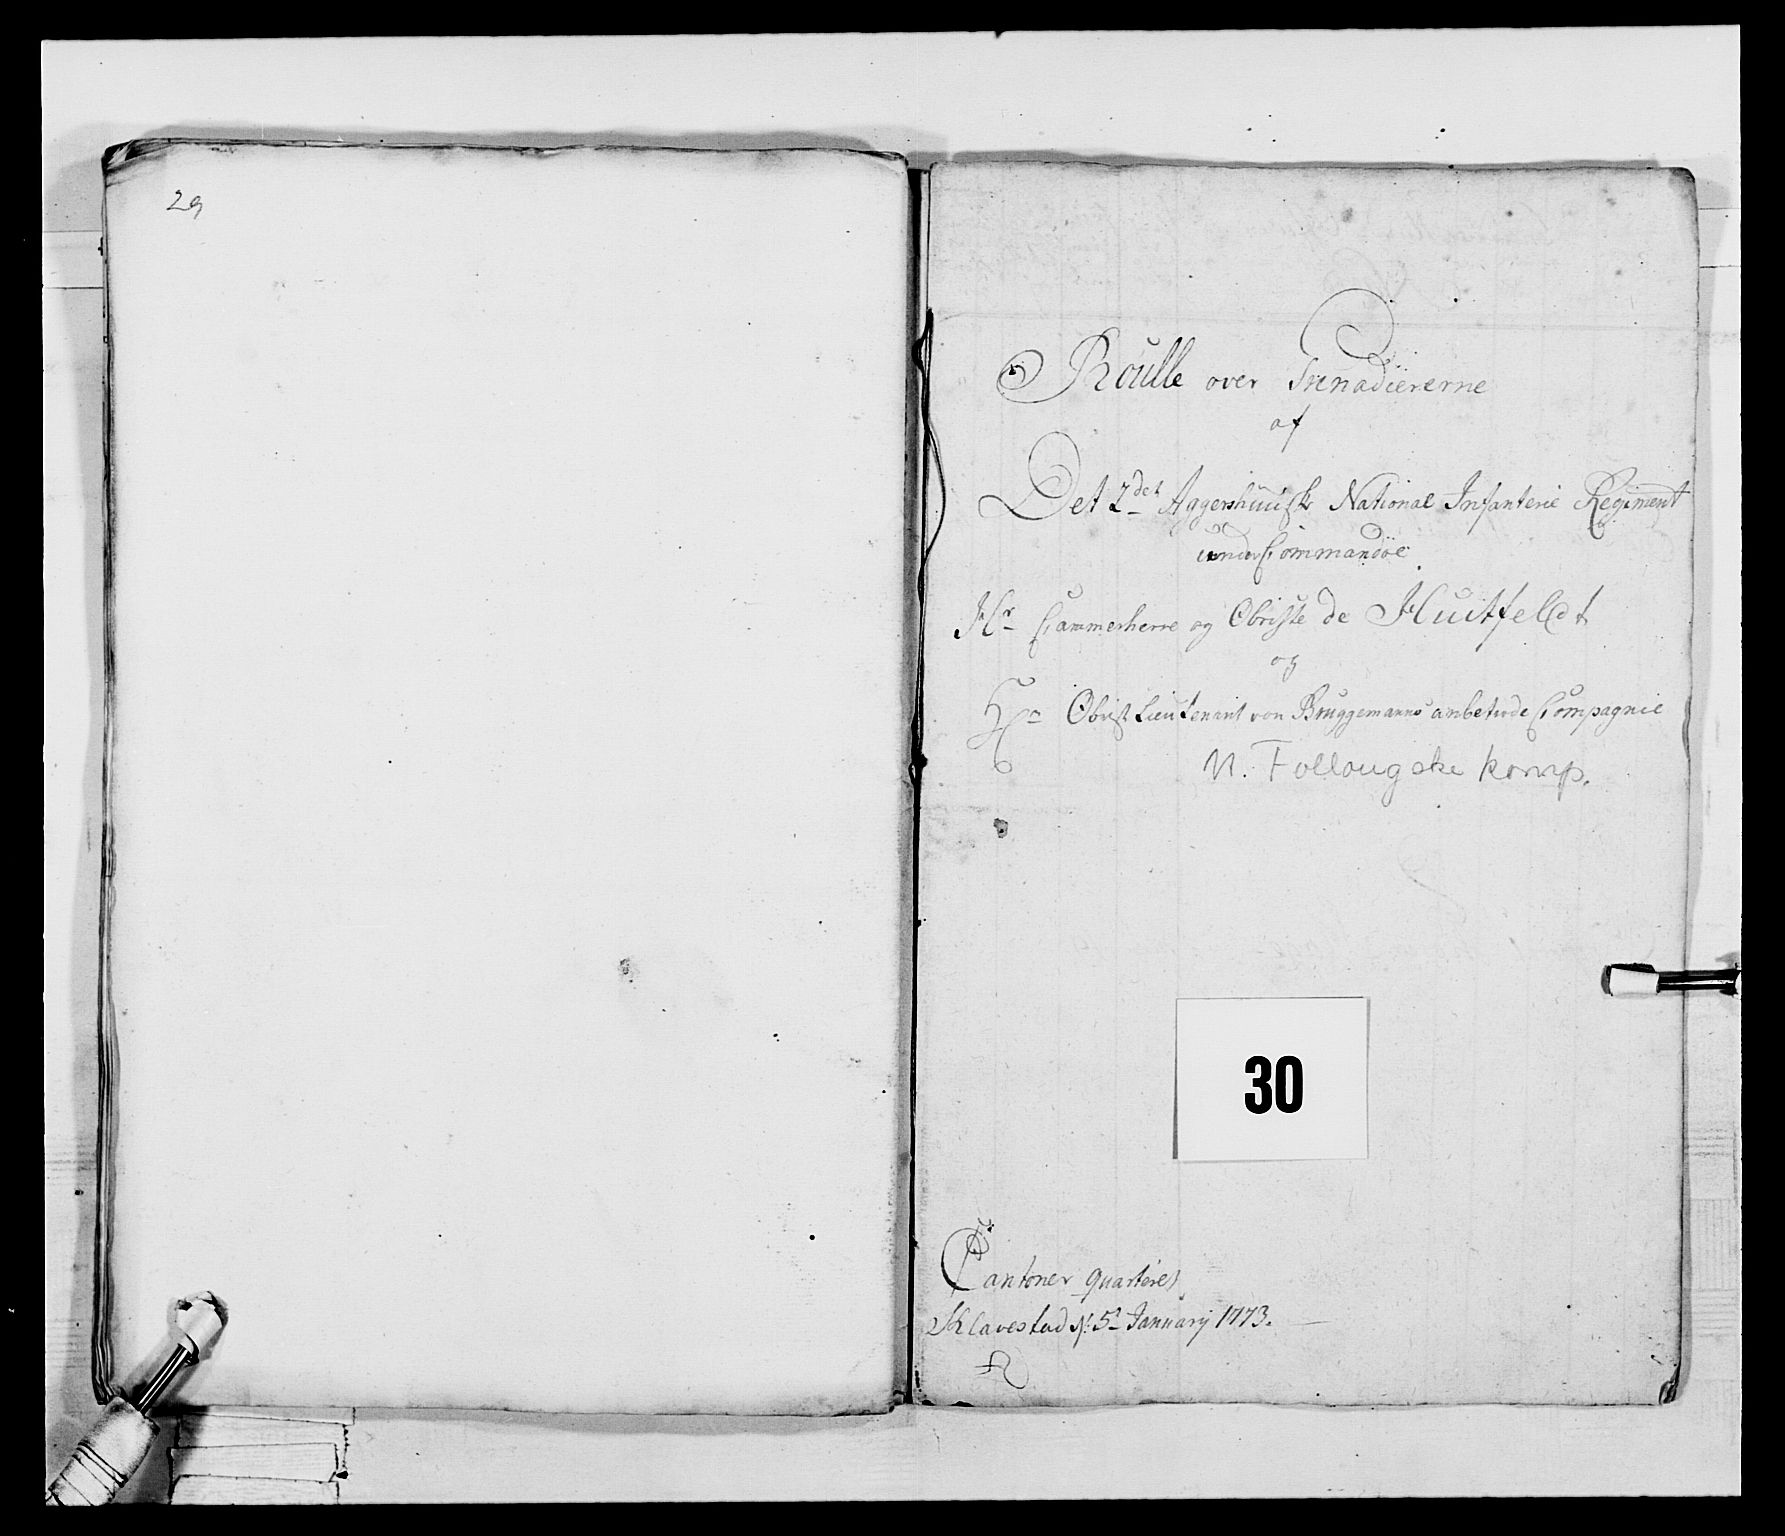 29
Roulle over Grenadiererne
af
Det 2det Aggershuusk National Infanterie Regiment
under Commandoe
Hr Cammerherre og Obriste de Huitfeldt
og
Hr Obrist Lieutenant von Bruggemanns anbetrode Compagnie
N. Follougske komp.
30
Cantoner quarteret
Klavestad d: 5t January 1773.